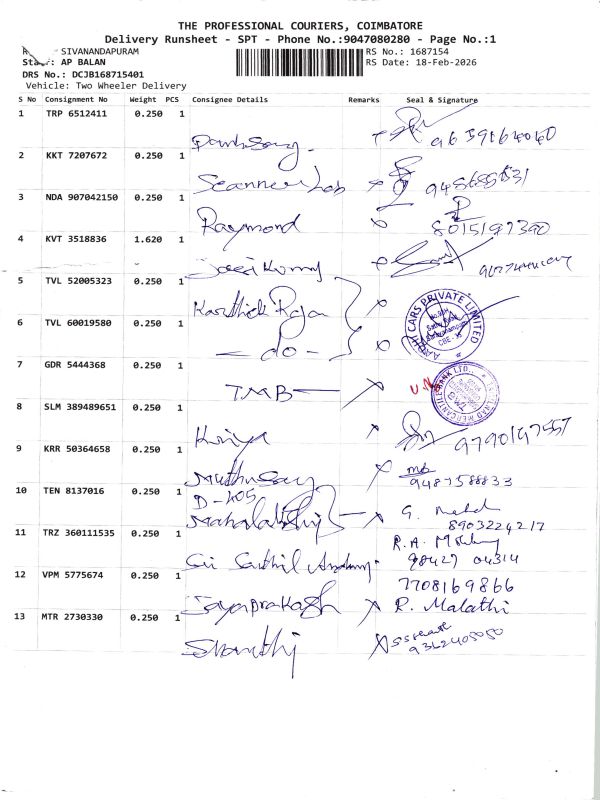 THE PROFESSIONAL COURIERS, COIMBATORE
Delivery Runsheet - SPT - Phone No.:9047080280 - Page No.:1
SIVANANDAPURAM
RS No.: 1687154
AP BALAN
RS Date: 18-Feb-2026
DRS No.: DCJB168715401
Vehicle: Two Wheeler Delivery
S No Consignment No Weight PCS Consignee Details Remarks Seal & Signature
1 TRP 6512411 0.250 1
2 KKT 7207672 0.250 1
3 NDA 907042150 0.250 1
Raymond 8015197390
4 KVT 3518836 1.620 1
5 TVL 52005323 0.250 1
Karthick Rajan
AADHI CARS PRIVATE LIMITED
6 TVL 60019580 0.250 1
- do -
7 GDR 5444368 0.250 1
TMB
8 SLM 389489651 0.250 1
9790197557
9 KRR 50364658 0.250 1
9487588833
10 TEN 8137016 0.250 1
D-405
8903224217
11 TRZ 360111535 0.250 1
98427 04314
12 VPM 5775674 0.250 1
7708169866
Jayaprakash R. Malathi
13 MTR 2730330 0.250 1
Shanthi 9362405050